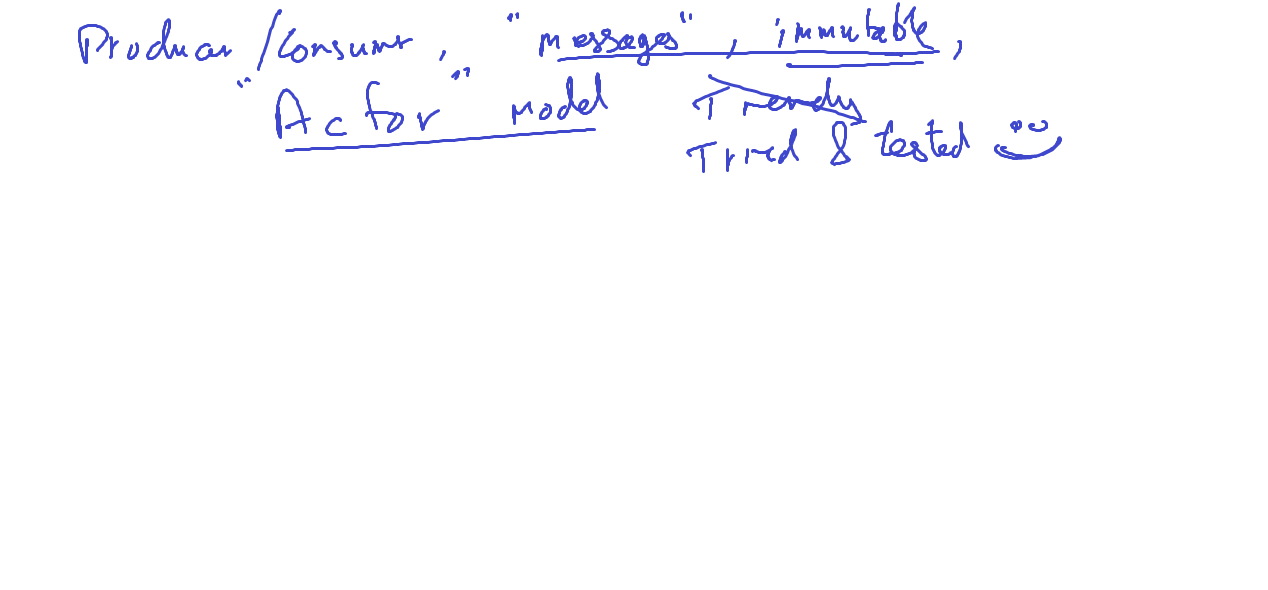 Producer/Consumer, "messages", immutable,
"Actor" model Trendy
Tried & tested